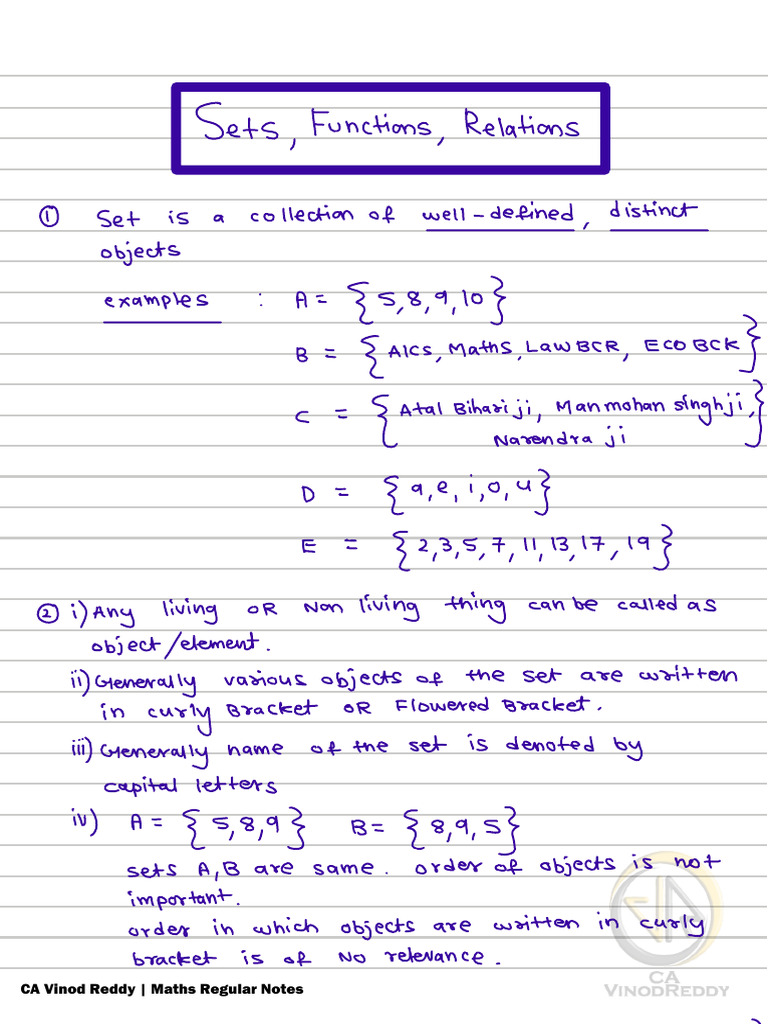 Sets, Functions, Relations
① Set is a collection of well-defined, distinct
objects
examples : A = {5,8,9,10}
B = {AICS, Maths, Law BCR, ECO BCK}
C = {Atal Bihari ji, Manmohan Singh ji,
Narendra ji}
D = {a,e,i,o,u}
E = {2,3,5,7,11,13,17,19}
② i) Any living OR Non living thing can be called as
object/element.
ii) Generally various objects of the set are written
in curly Bracket OR Flowered Bracket.
iii) Generally name of the set is denoted by
capital letters
iv) A = {5,8,9} B = {8,9,5}
sets A,B are same. order of objects is not
important.
order in which objects are written in curly
bracket is of No relevance.
CA
VINODREDDY
CA Vinod Reddy | Maths Regular Notes